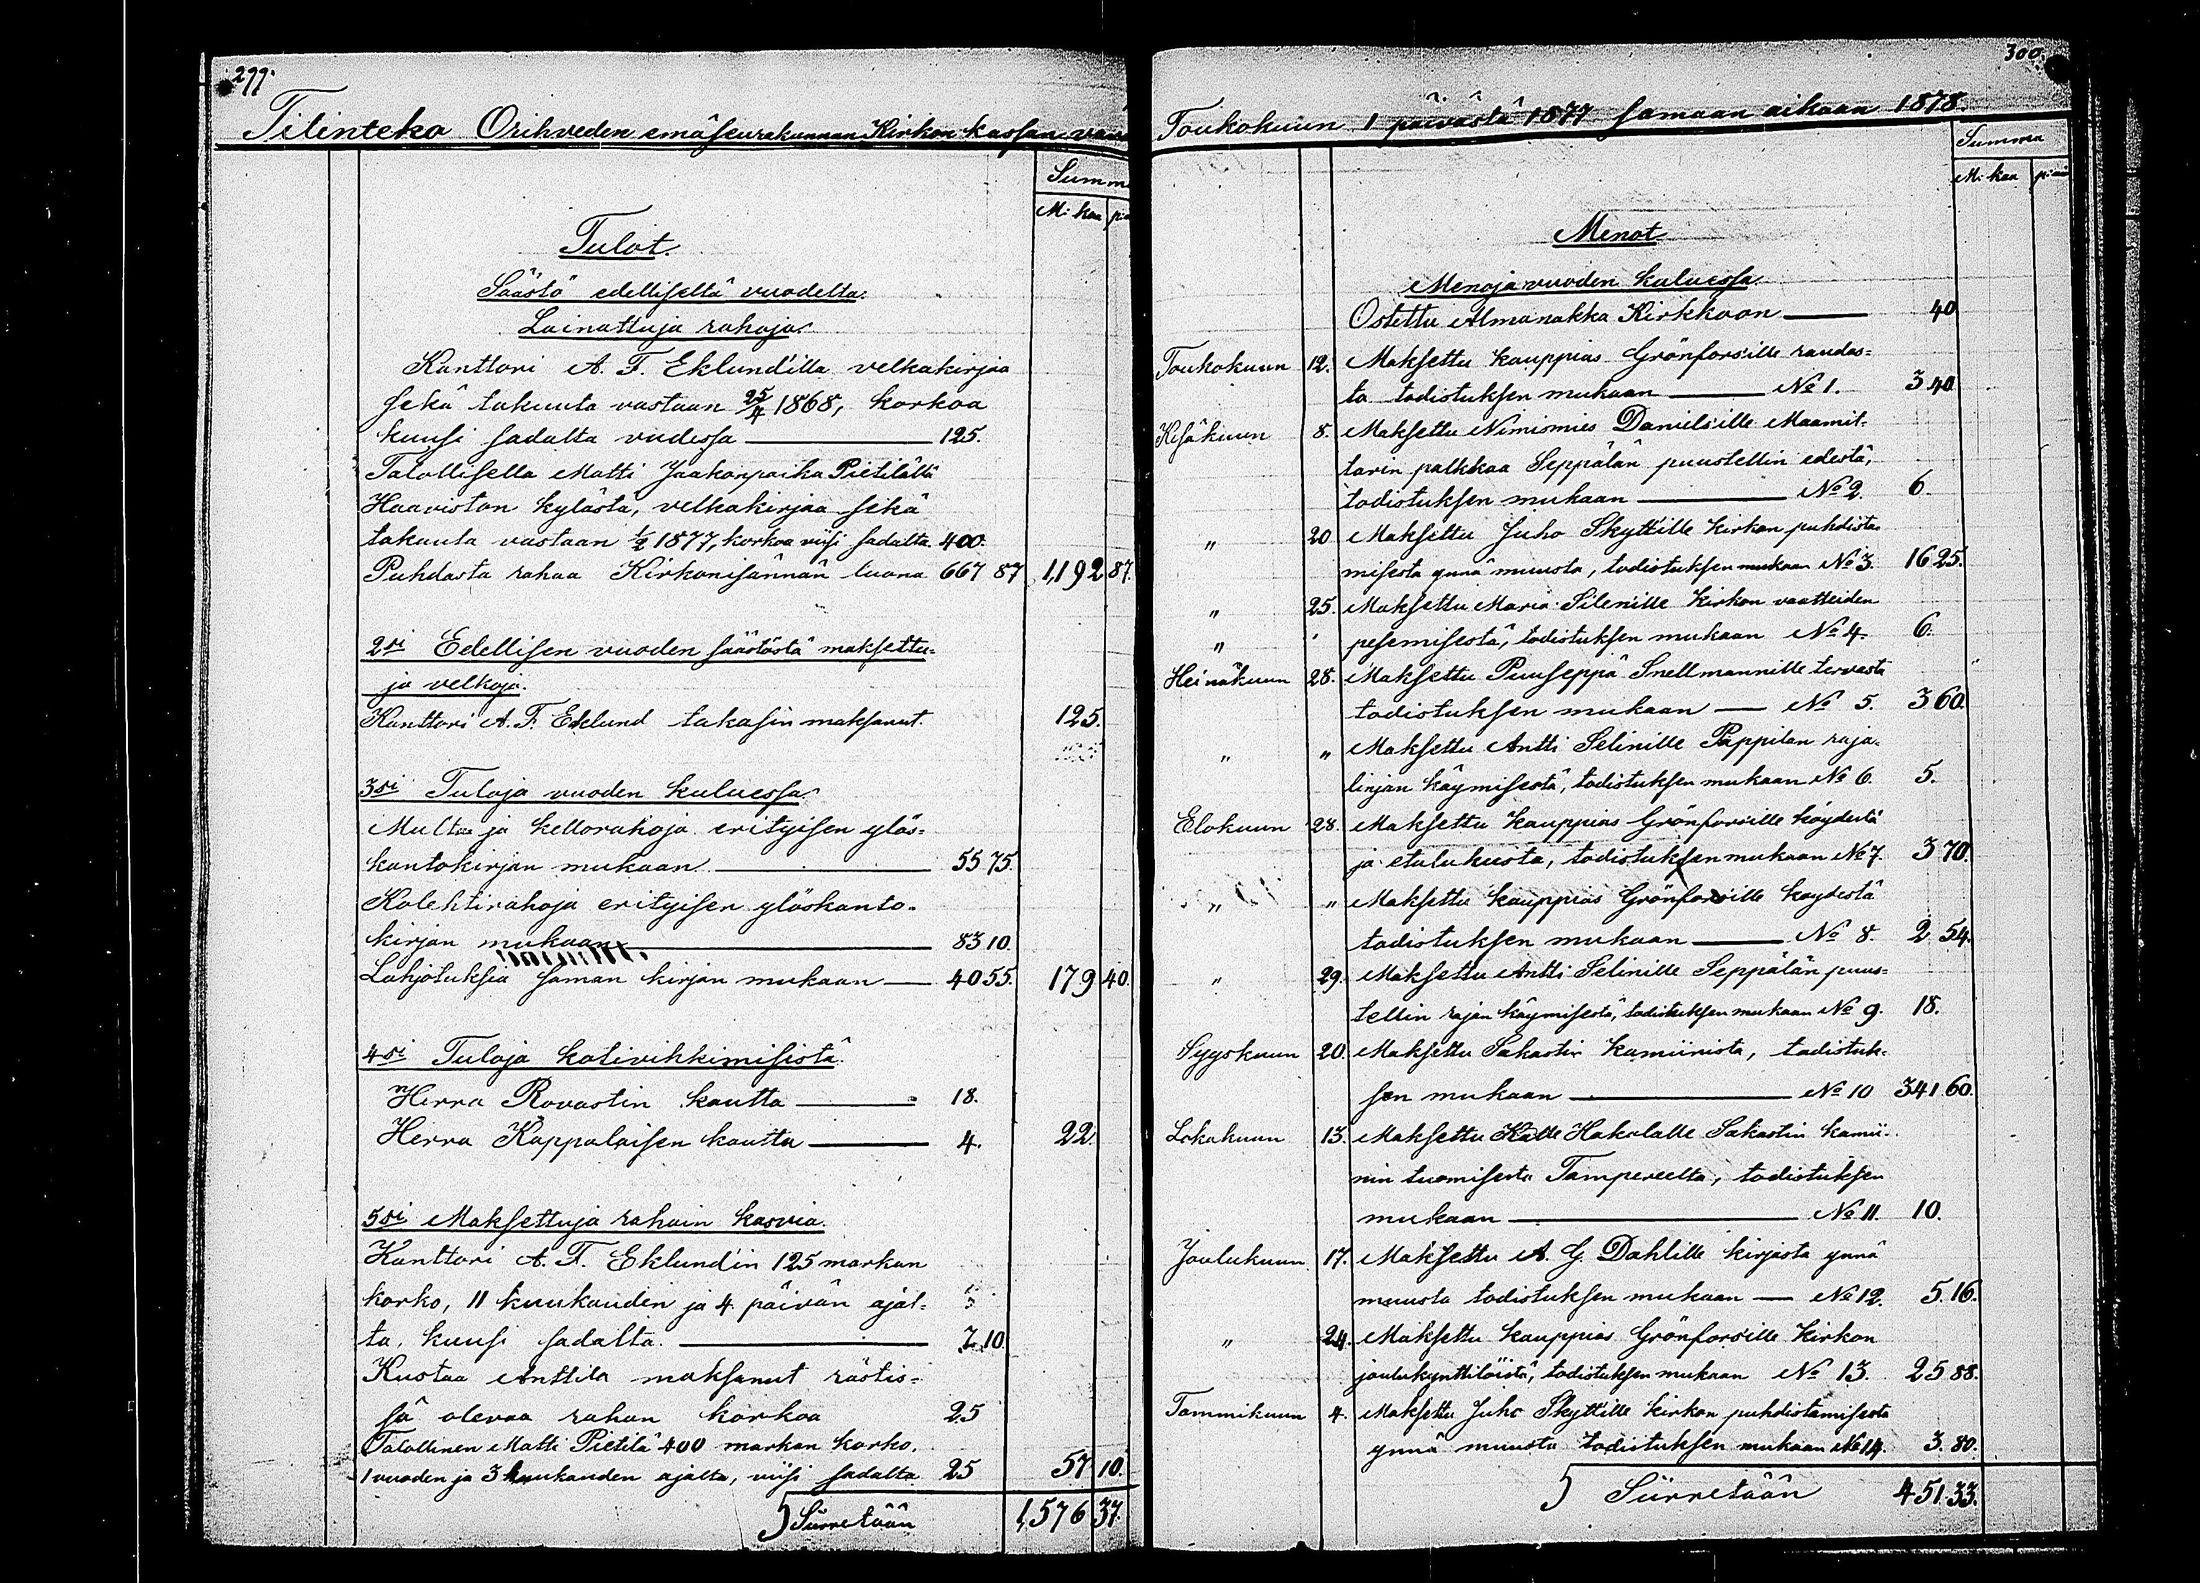 299.
Tilinteko Orihveden emäseurakunnan Kirkon kassan
Summ
M:kaa
Tulot.
Säästö edelliseltä vuodelta.
Lainattuja rahoja.
Kanttori A. F. Eklund'illa velkakirjaa
sekä takuuta vastaan 25/4 1868, korkoa
kuusi sadalta vudessa 125.
Talollisella Matti Jaakonpoika Pietilällä
Haaviston kylästä, velkakirjaa sekä
takuuta vastaan 1/2 1877, korkoa viisi sadalta. 400.
Puhdasta rahaa Kirkonisännän luona 667 87 1,192 87.
2si Edellisen vuoden säästöstä maksettu-
ja velkoja.
Kanttori A. F. Eklund takasin maksanut. 125.
3si Tuloja vuoden kuluessa.
Multa ja kellorahoja erityisen ylös-
kantokirjan mukaan 55 75.
Kolehtirahoja erityisen ylöskanto-
kirjan mukaan 83 10.
Lahjotuksia saman kirjan mukaan 40 55. 179 40.
4si Tuloja kotivihkimisistä.
Herra Rovastin kautta 18.
Herra Kappalaisen kautta 4. 22.
5si Maksettuja rahain kasvia.
Kanttori A. F. Eklund'in 125 markan
korko, 11 kuukauden ja 4 päivän ajal-
ta, kuusi sadalta. 7 10.
Kustaa Anttila maksanut rästis-
sä olevaa rahan korkoa 25
Talollinen Matti Pietilä 400 markan korko,
1 vuoden ja 3 kuukauden ajalta, viisi sadalta 25 57 10.
Siirretään 1,576 37.
300.
Toukokuun 1 päivästä 1877 samaan aikaan 1878.
Summa
M:kaa
Menot
Menoja vuoden kuluessa.
Ostettu Almanakka Kirkkoon 40
Toukokuun 12. Maksettu kauppias Grönfors'ille raudas-
ta todistuksen mukaan No 1. 3 40
Kesäkuun 8. Maksettu Nimismies Daniels'ille Maamit-
tarin palkkaa Seppälän puustellin edestä,
todistuksen mukaan No 2. 6.
" 20 Maksettu Juho Skytt'ille kirkon puhdista-
misesta ynnä muusta, todistuksen mukaan No 3. 16 25.
" 25. Maksettu Maria Silenille kirkon vaatteiden
" pesemisestä, todistuksen mukaan No 4. 6.
Heinäkuun 28. Maksettu Puuseppä Snellmannille tervasta
todistuksen mukaan No 5. 3 60.
" " Maksettu Antti Selinille Pappilan raja-
linjan käymisestä, todistuksen mukaan No 6. 5.
Elokuun 28. Maksettu kauppias Grönfors'ille köydestä
ja etulukusta, todistuksen mukaan No 7. 3 70.
" " Maksettu kauppias Grönforsille köydestä
todistuksen mukaan No 8. 2 54.
" 29. Maksettu Antti Selinille Seppälän puus-
tellin rajan käymisestä, todistuksen mukaan No 9. 18.
Syyskuun 20. Maksettu Sakastin kamiinista, todistuk-
sen mukaan No 10 341 60.
Lokakuun 13. Maksettu Kalle Hakolalle Sakastin kamii-
nin tuomisesta Tampereelta, todistuksen
mukaan No 11. 10.
Joulukuun 17. Maksettu A. G. Dahlille kirjasta ynnä
muusta todistuksen mukaan No 12. 5.16.
" 24. Maksettu kauppias Grönfors'ille kirkon
joulukynttilöistä, todistuksen mukaan No 13. 25 88.
Tammikuun 4. Maksettu Juho Skytt'ille kirkon puhdistamisesta
ynnä muusta todistuksen mukaan No 14. 3. 80.
Siirretään 451.33.